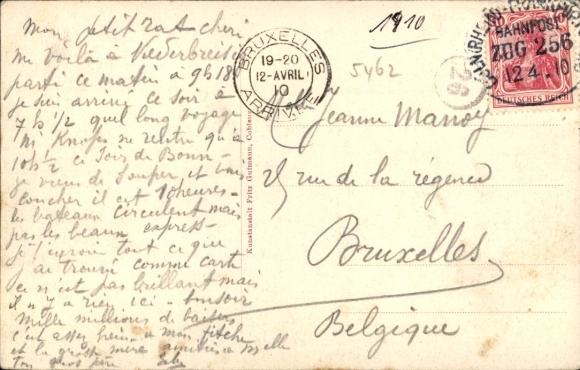 Mon petit rat cheri
me voilà à Niederbreisig
parti ce matin à 9h18
je suis arrivé ce soir à
7h 1/2 quel long voyage
Mr Knops ne rentre qu'à
10h 1/2 ce soir de Bonn -
je viens de souper, et vais
coucher il est heures -
les bateaux circulent mais
pas les beaux express -
je t'envoie tout ce que
j'ai trouvé comme carte
ce n'est pas brillant mais
il n'y a rien ici - bonsoir
Mille millions de baisers
c'est assez hein a mon
et la grosse mère
Ton gros père
BRUXELLES
19-20
12-AVRIL
10
ARRIVÉE
1910
5462
BAHNPOST
ZUG 256
12.4.10
DEUTSCHES REICH
Jeanne Mannoy
25 rue de la régence
Bruxelles
Belgique
Kunstanstalt Fritz Gutmann, Coblenz